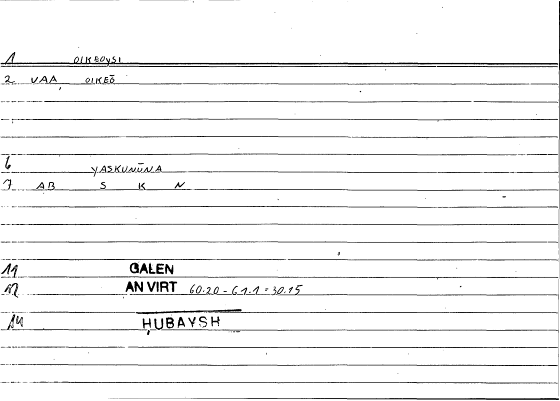 1 OIKEOYSI
2 VAA, OIKEŌ
6
YASKUNŪNA
7 AB S K N
11 GALEN
12 AN VIRT 60.20 - 61.1 = 30.15
14 HUBAYSH